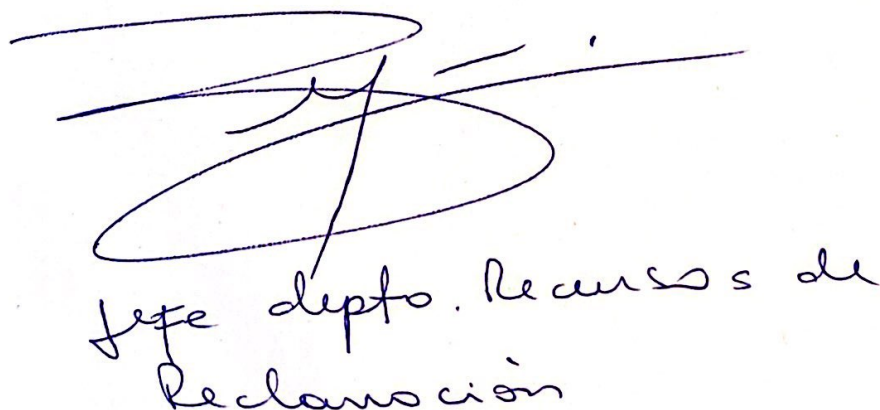 Jefe depto. Recursos de
Reclamación